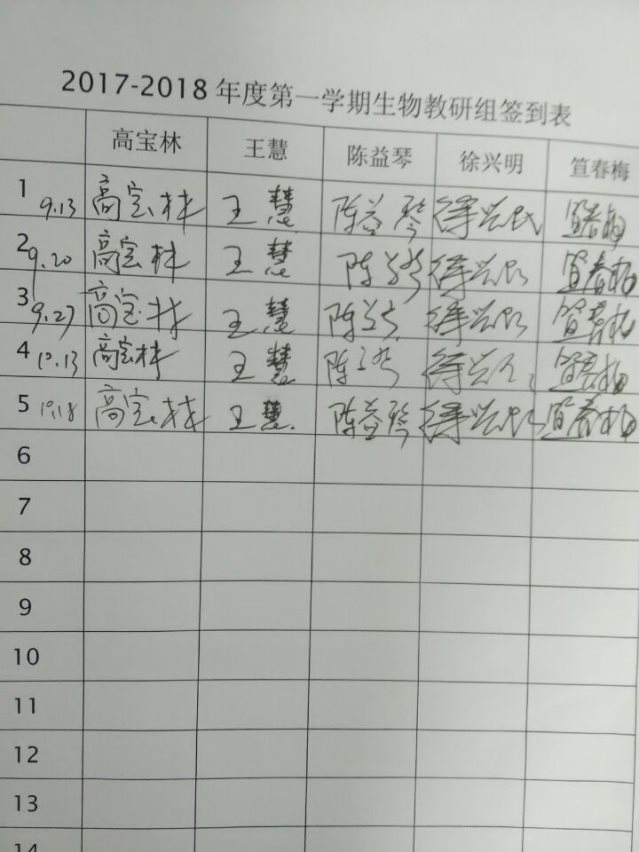 2017-2018年度第一学期生物教研组签到表
高宝林 王慧 陈益琴 徐兴明 笪春梅
1 9.13 高宝林 王慧 陈益琴 徐兴明 笪春梅
2 9.20 高宝林 王慧 陈益琴 徐兴明 笪春梅
3 9.27 高宝林 王慧 陈益琴 徐兴明 笪春梅
4 10.13 高宝林 王慧 陈益琴 徐兴明 笪春梅
5 10.18 高宝林 王慧 陈益琴 徐兴明 笪春梅
6
7
8
9
10
11
12
13
14